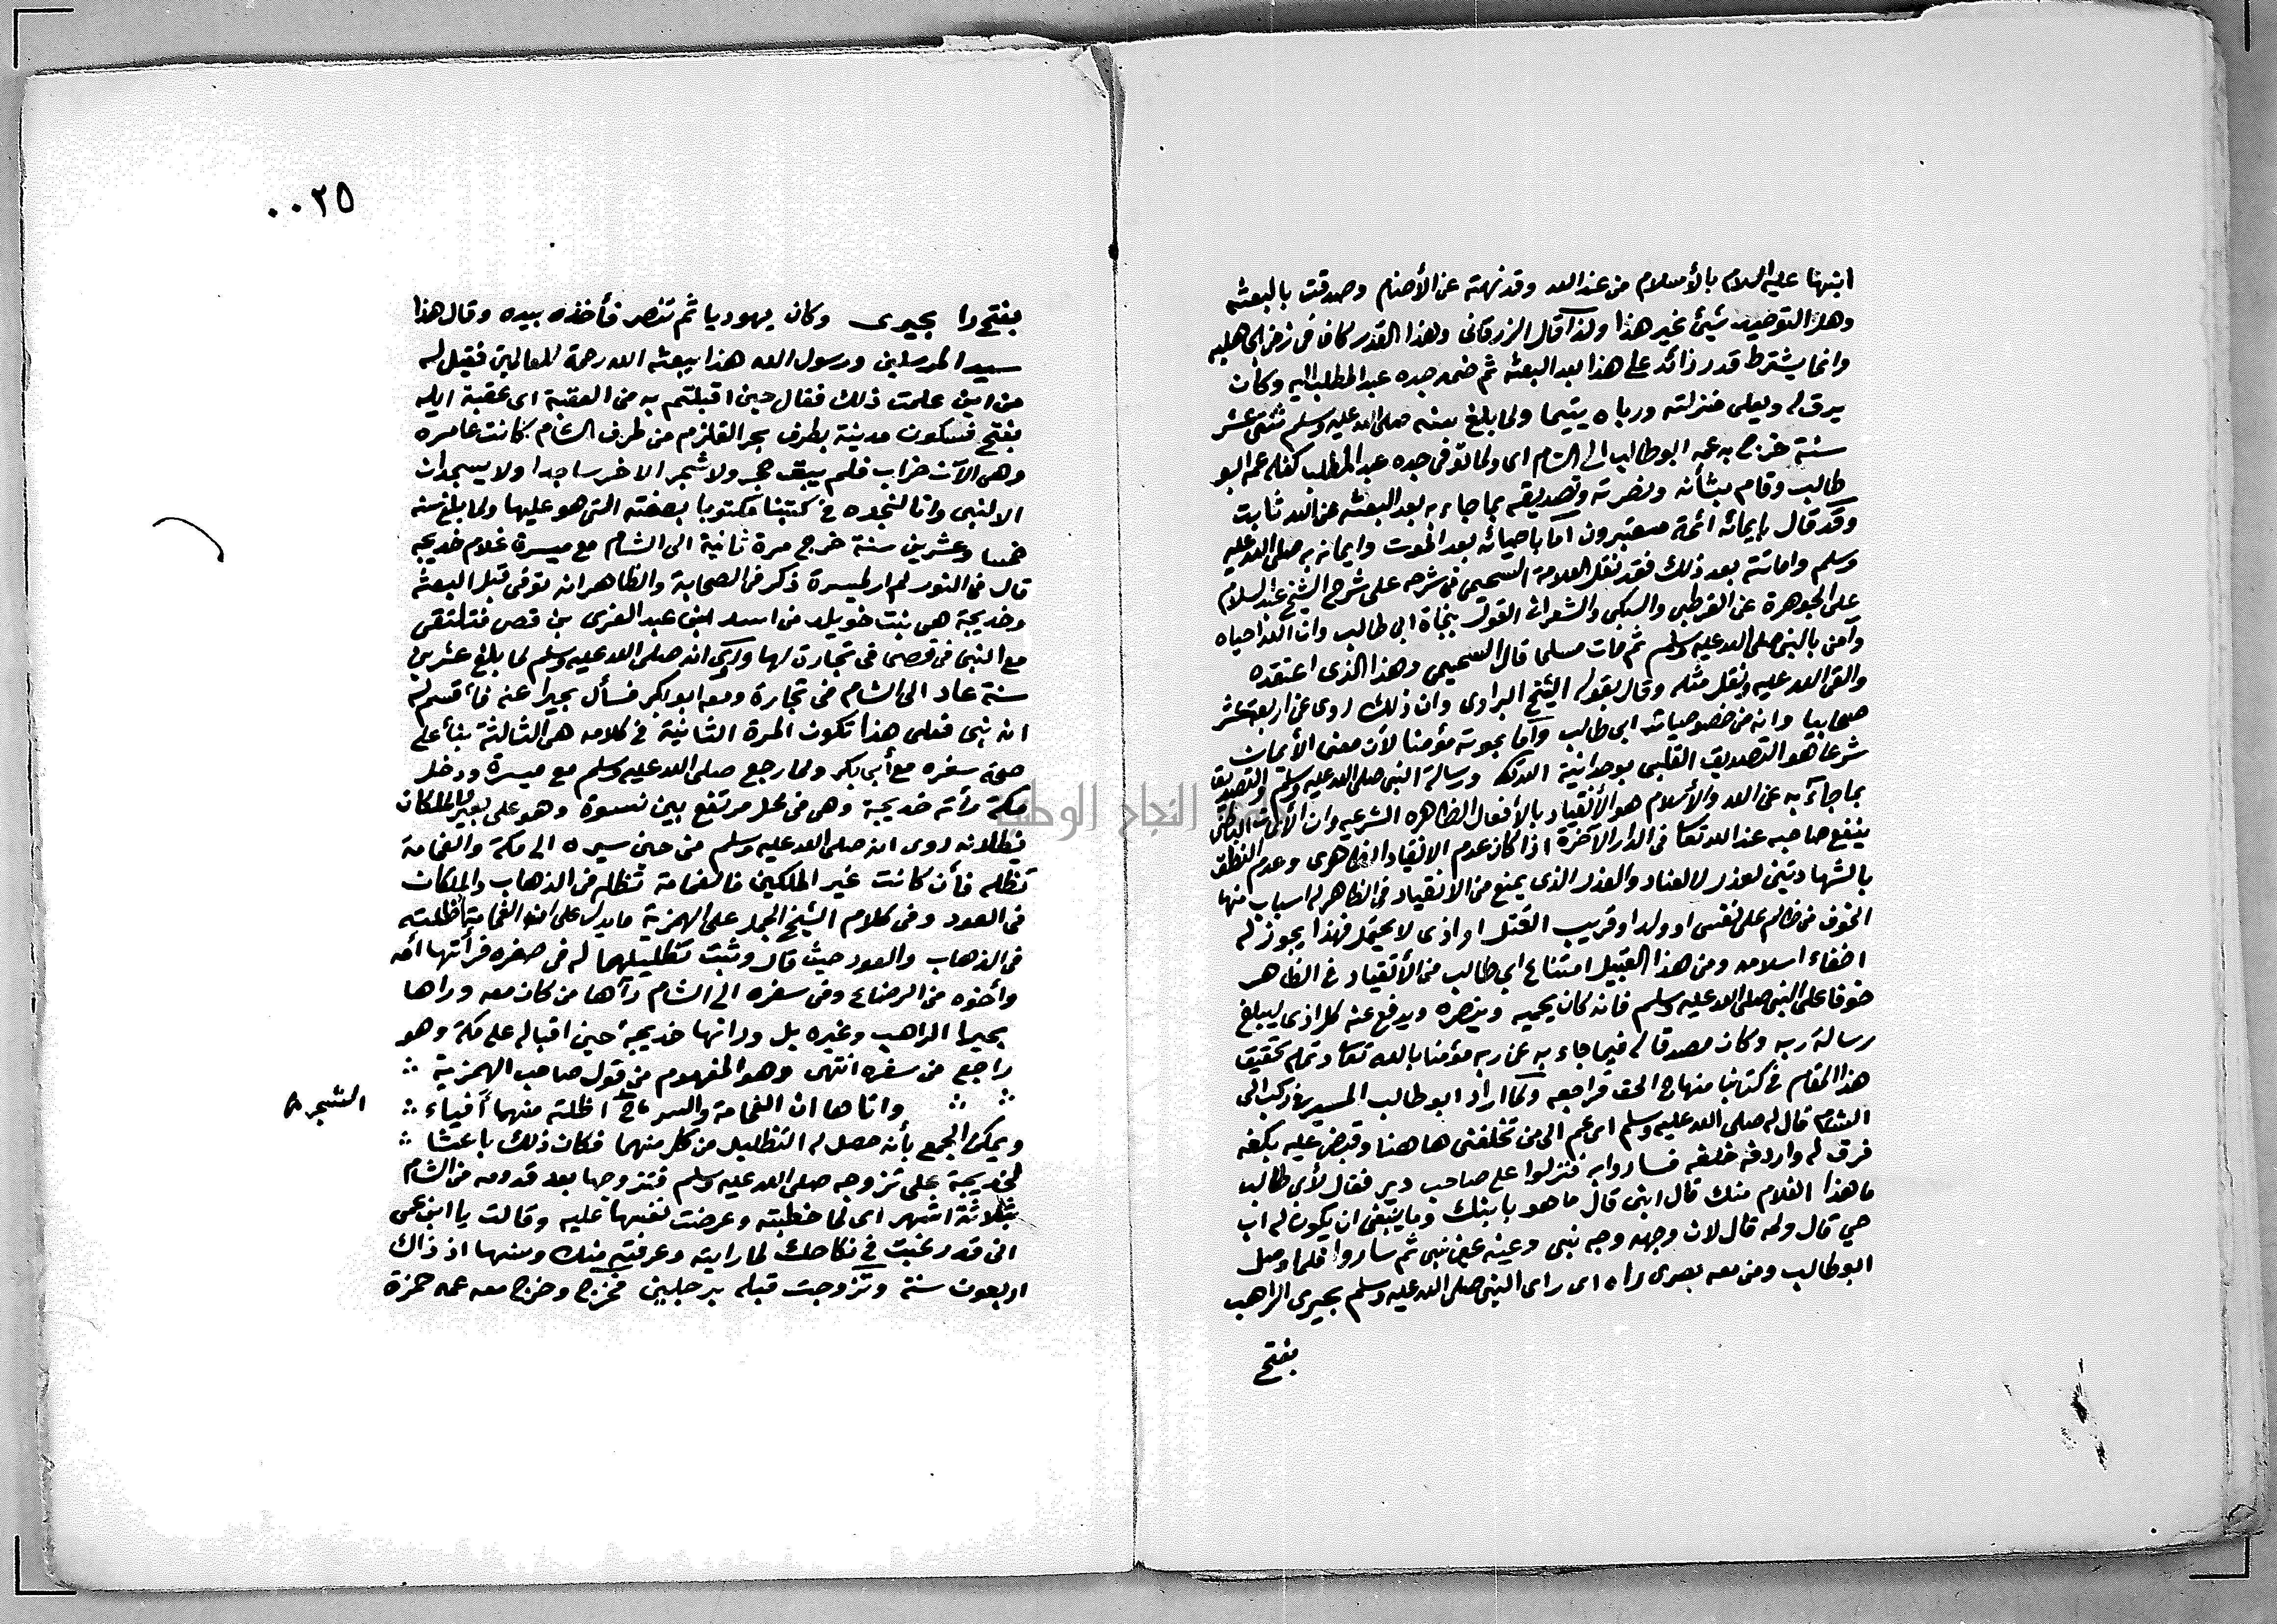 ابنها عليه السلام بالأسلام من عند الله وقد نهته عن الأصنام وصدقت بالبعثه
وهل التوحيد شيئ غير هذا ولذا قال الزرقاني وهذا القدر كاف في زمن الجاهليه
وانما يشترط قدر زائد على هذا بعد البعثه ثم ضمه جده عبد المطلب اليه وكان
يرق له ويعلى منزلته ورباه يتيما ولما بلغ سنه صلى الله عليه وسلم ثنتي عشر
سنة خرج به عمه ابو طالب الى الشام اى ولما توفى جده عبد المطلب كفله عمه ابو
طالب وقام بشأنه ونصرته وتصديقه بما جاء به بعد البعثه عن الله ثابت
وقد قال بإيمانه ائمة معتبرون اما باحيائه بعد الموت وايمانه به صلى الله عليه
وسلم واماتته بعد ذلك فقد نقل العلامة السحيمي في شرحه على شرح الشيخ عبد السلام
على الجوهرة عن القرطبي والسبكي والشعراني القول بنجاة ابي طالب وان الله احياه
وآمن بالنبي صلى الله عليه وسلم ثم مات مسلما قال السحيمي وهذا الذى اعتقده
والقى الله عليه ونقل مثله وقال بقوله الشيخ البراوى وان ذلك روى عن اربعة عشر
صحابيا وانه من خصوصيات ابي طالب واما بموته مؤمنا لأن معنى الأيمان
شرعا هو التصديق القلبى بوحدانية الله ورسالة النبي صلى الله عليه وسلم والتصديق
بما جآء به عن الله والأسلام هو الأنقياد بالأفعال الظاهره الشرعيه وان الأيمان الباطن
ينفع صاحبه عند الله تعا فى الدار الآخرة اذا كان عدم الانقياد الظاهرى وعدم النطق
بالشهادتين لعذر لا لعناد والعذر الذى يمنع من الانقياد فى الظاهر له اسباب منها
الخوف من ظالم على نفسى او ولد او قريب القتل او اذى لا يحتمل فهذا يجوز له
اخفاء اسلامه ومن هذا القبيل امتناع ابي طالب من الأنقياد في الظاهر
خوفا على النبي صلى الله عليه وسلم فانه كان يحميه وينصره ويدفع عنه كل اذى ليبلغ
رسالة ربه وكان مصدقا له فيما جاء به عن ربه مؤمنا بالله تعا وتمام تحقيق
هذا المقام في كتابنا منهاج الحق فراجعه ولما اراد ابو طالب المسير في ركب الى
الشام قال له صلى الله عليه وسلم اى عم الى من تخلفنى هاهنا وقبض عليه بكفه
فرق له واردفه خلفه فساروا به فنزلوا على صاحب دير فقال لأبي طالب
ما هذا الغلام منك قال ابنى قال ما هو بابنك وما ينبغى ان يكون له اب
حي قال ولم قال لان وجهه وجه نبى وعينه عين نبي ثم ساروا فلما وصل
ابو طالب ومن معه بصرى راه اى راى النبي صلى الله عليه وسلم بحيرى الراهب
بفتح
٠٠٢٥
بفتح را بحيرى وكان يهوديا ثم تنصر فأخذه بيده وقال هذا
سيد المرسلين ورسول الله هذا يبعثه الله رحمة للعالمين فقيل له
من اين علمت ذلك فقال حين اقبلتم به من العقبة اى عقبة ايله
بفتح فسكون مدينة بطرف بحر القلزم من طرف الشام كانت عامره
وهى الآن خراب فلم يبق حجر ولا شجر الا خر ساجدا ولا يسجدان
الا لنبى وانا لنجده في كتبنا مكتوبا بصفته التى هو عليها ولما بلغ سنه
خمسا وعشرين سنة خرج مرة ثانية الى الشام مع ميسرة غلام خديجه
قال فى النور لم ار لميسرة ذكر فى الصحابة والظاهر انه توفى قبل البعثه
وخديجة هى بنت خويلد من اسد ابن عبد العزى بن قصى فتلتقى
مع النبى فى قصى فى تجارة لها وروى انه صلى الله عليه وسلم لما بلغ عشرين
سنة عاد الى الشام فى تجارة ومعه ابو بكر فسأل بحيرا عنه فاقسم له
انه نبى فعلى هذا تكون المرة الثانية في كلامه هى الثالثة بنأ على
صحة سفره مع أبى بكر ولما رجع صلى الله عليه وسلم مع ميسرة ودخل
مكة رأته خديجة وهى فى محل مرتفع بين نسوة وهو على بعير والملكان
يظلانه روى انه صلى الله عليه وسلم من حين سيره الى مكة والغمامة
تظله فأن كانت غير الملكين فالغمامة تظله فى الذهاب والملكان
فى العود وفى كلام الشيخ الجمل على الهمزية ما يدل على ان الغمامة اظلته
فى الذهاب والعود حيث قال وثبت تظليلهما له فى صغره فرأتها امه
وأخوه من الرضاع وفى سفره الى الشام رآها من كان معه وراها
بحيرا الراهب وغيره بل وراتها خديجة حين اقباله على مكة وهو
راجع من سفره انتهى وهو المفهوم من قول صاحب الهمزية
واتاها ان الغمامة والسرح اظلته منهما أفياء
الشجر
ويمكن الجمع بأنه حصل له التظليل من كل منهما فكان ذلك باعثا
لخديجة على تزوجه صلى الله عليه وسلم فتزوجها بعد قدومه من الشام
بثلاثة اشهر اى لما خطبته وعرضت نفسها عليه وقالت يا ابن عمى
انى قد رغبت في نكاحك لما رايته وعرفته منك وسنها اذ ذاك
اربعون سنة وتزوجت قبله برجلين فخرج وخرج معه عمه حمزة